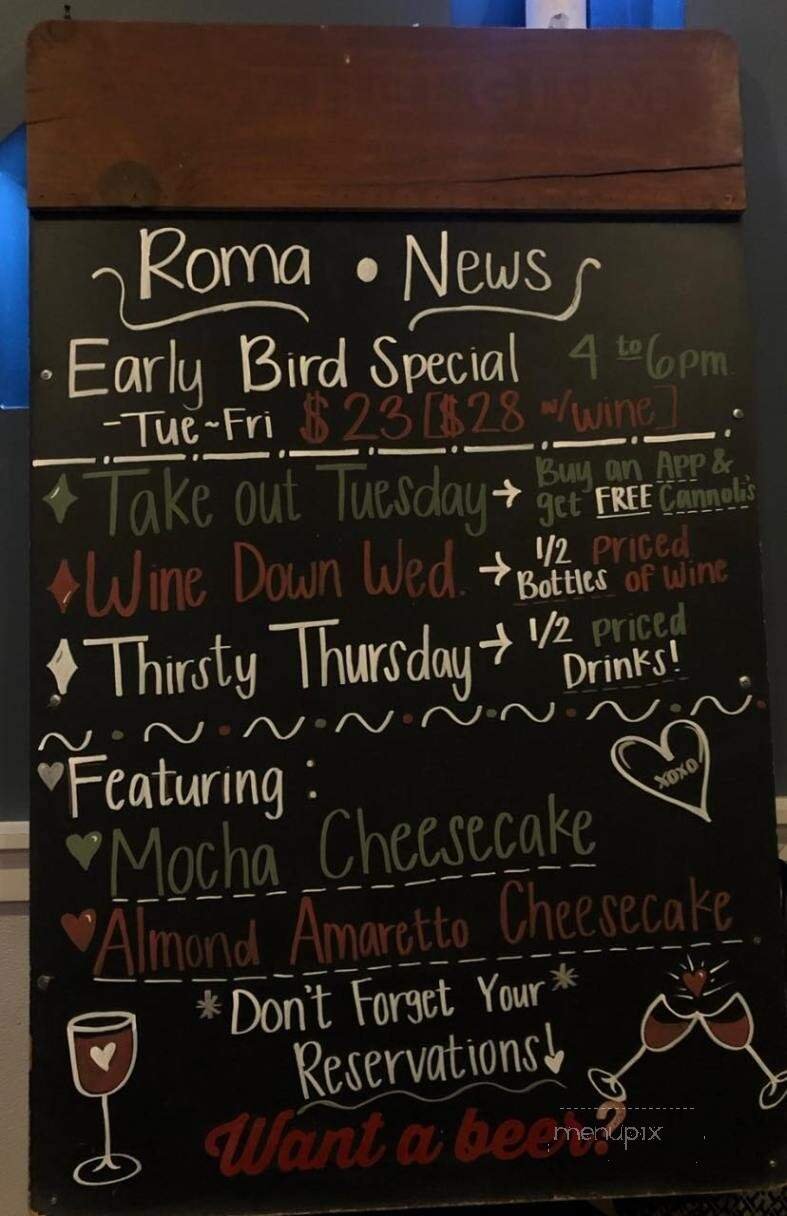 Roma • News
Early Bird Special 4 to 6pm
-Tue~Fri $23 [$28 w/wine]
Take out Tuesday → Buy an App &
get FREE Cannoli's
Wine Down Wed. → 1/2 Priced
Bottles of wine
Thirsty Thursday → 1/2 priced
Drinks!
Featuring:
xoxo
Mocha Cheesecake
Almond Amaretto Cheesecake
*Don't Forget Your*
Reservations!
Want a beer?
menupix